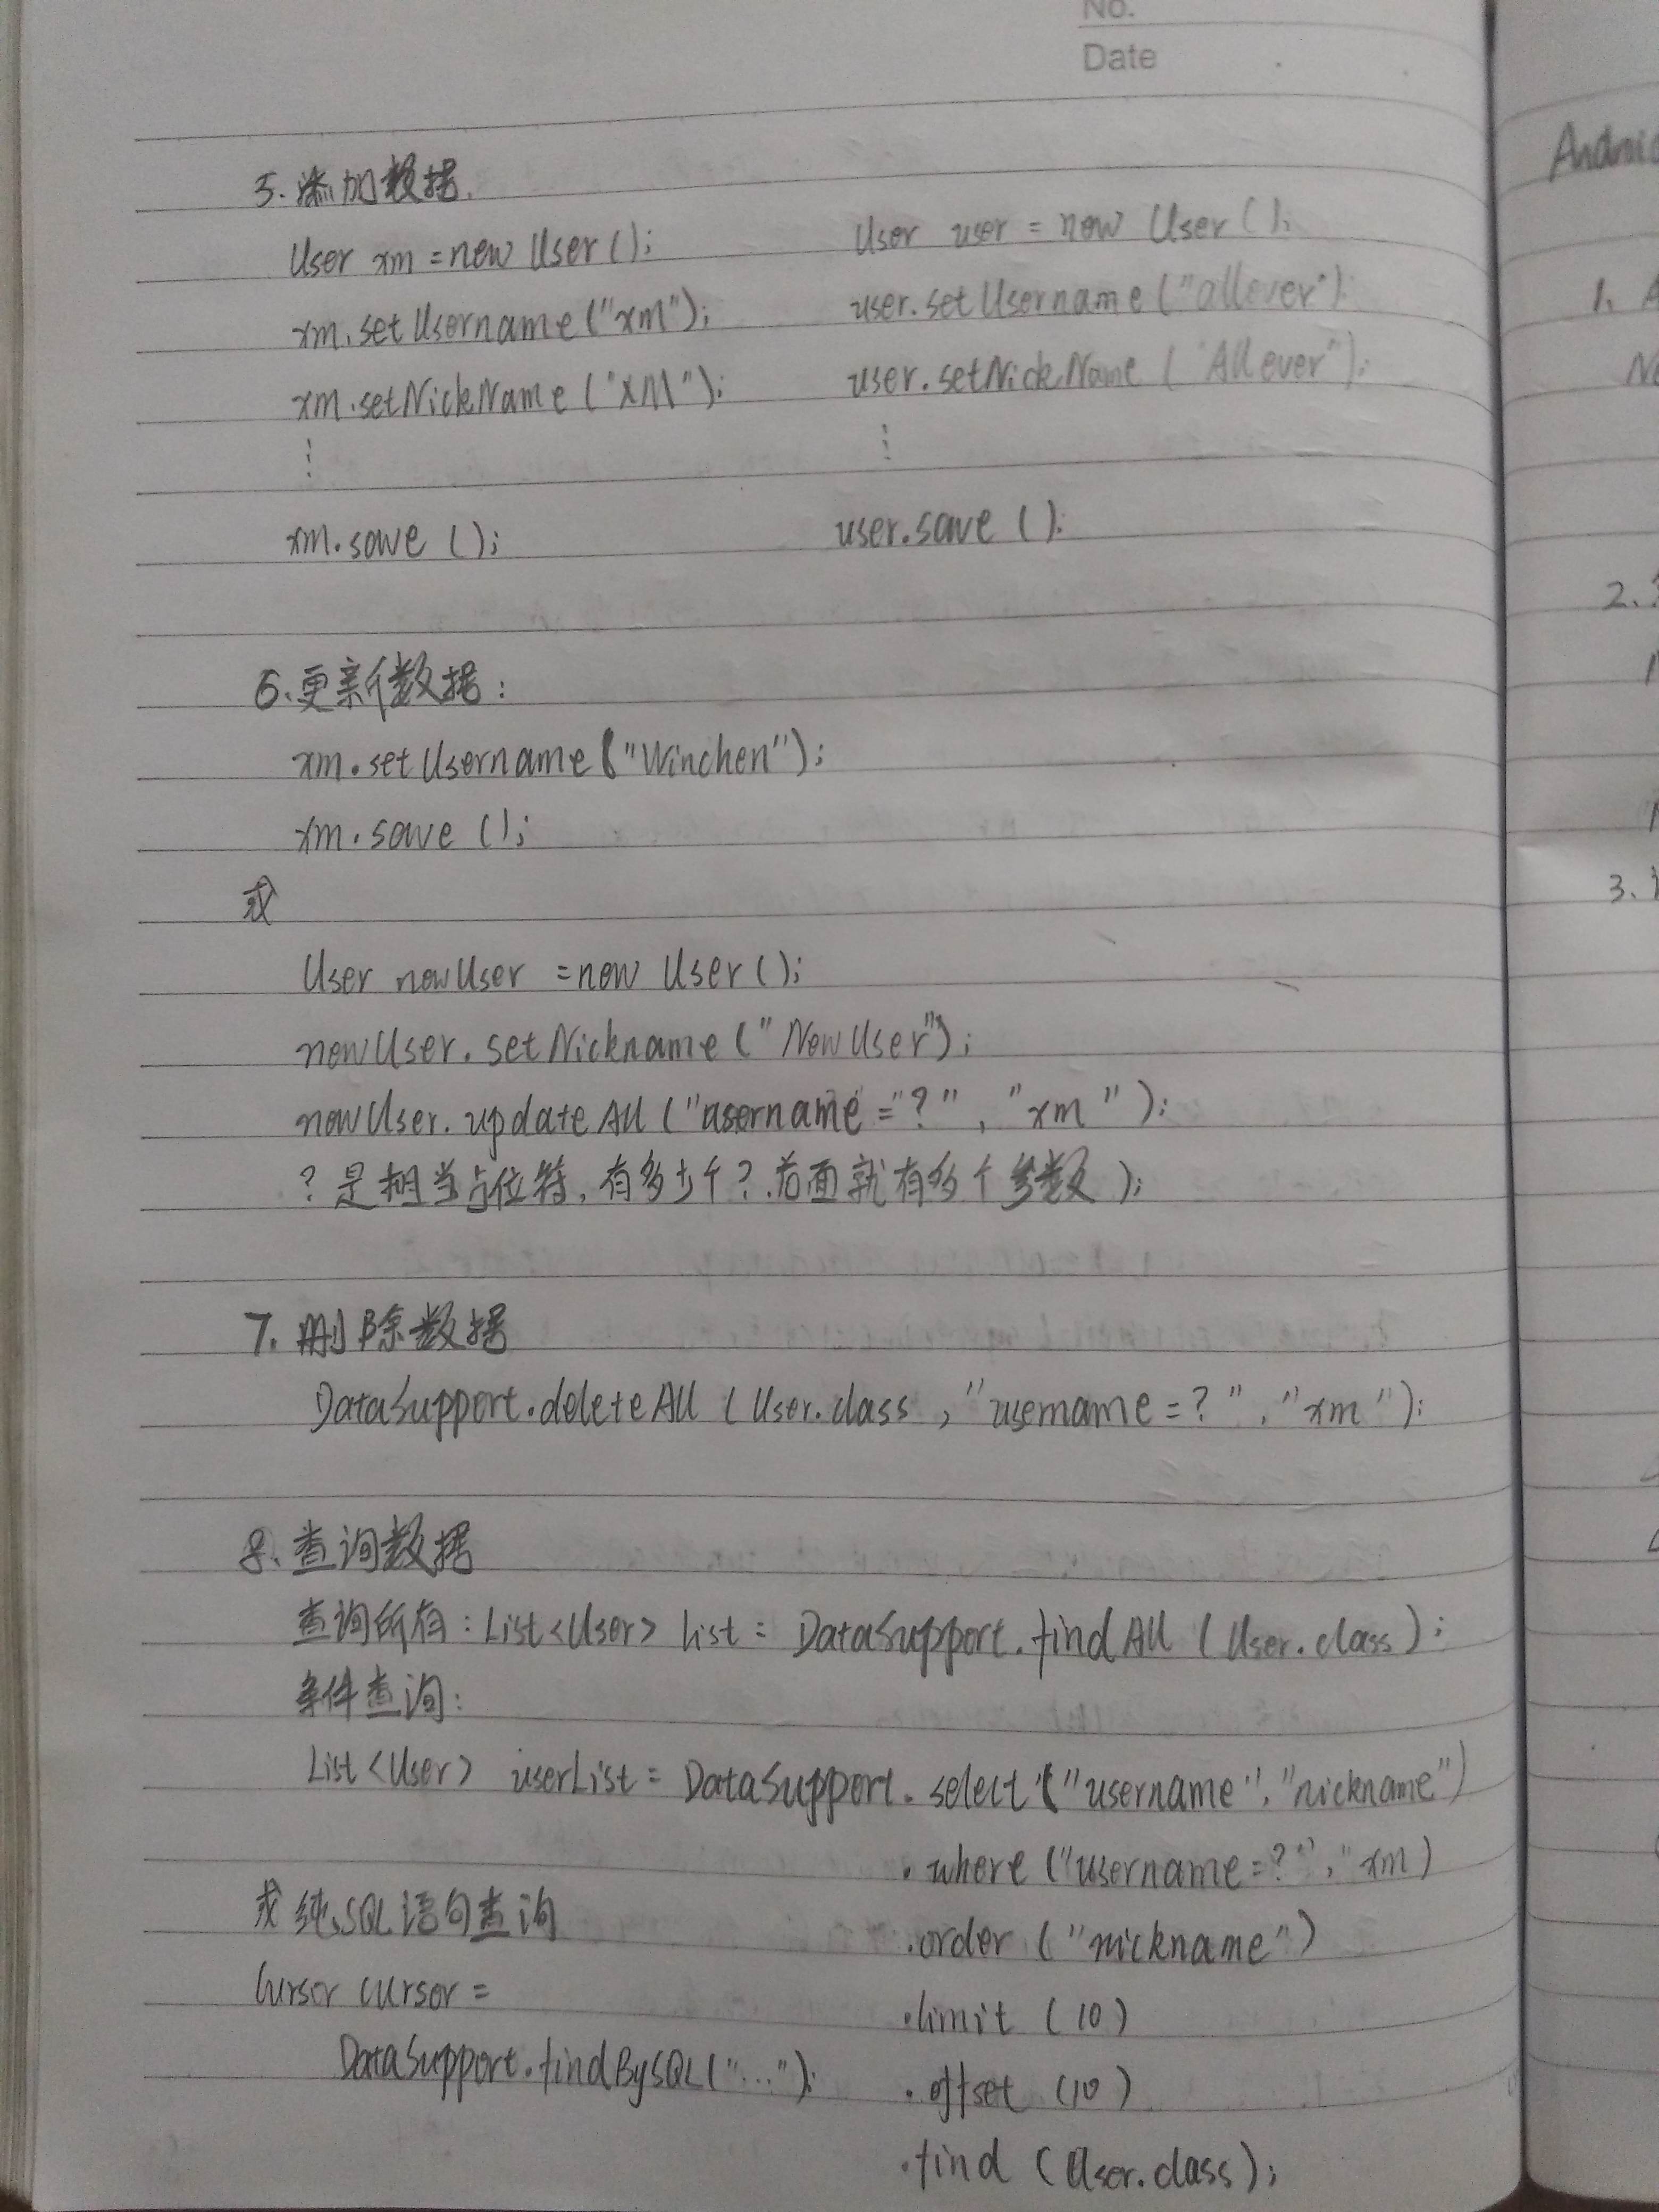 No.
Date
5. 添加数据.
User xm = new User ();
xm.setUsername ("xm");
xm.setNickName ("XM");
⋮
xm.save ();
User user = new User ();
user.setUsername ("allever");
user.setNickName ("Allever");
⋮
user.save ();
6、更新数据:
xm.setUsername ("Winchen");
xm.save ();
或
User newUser = new User ();
newUser.setNickname ("NewUser");
newUser.updateAll ("username="?", "xm");
?是相当占位符, 有多少个?.后面就有多个参数);
7. 删除数据
DataSupport.deleteAll (User.class, "username=?", "xm");
8、查询数据
查询所有: List<User> list = DataSupport.findAll (User.class);
条件查询:
List <User> userList = DataSupport.select ("username", "nickname")
.where ("username=?", "xm)
.order ("nickname")
.limit (10)
.offset (10)
.find (User.class);
或纯SQL语句查询
Cursor cursor =
DataSupport.findBySQL("...");
1.
2.
3.